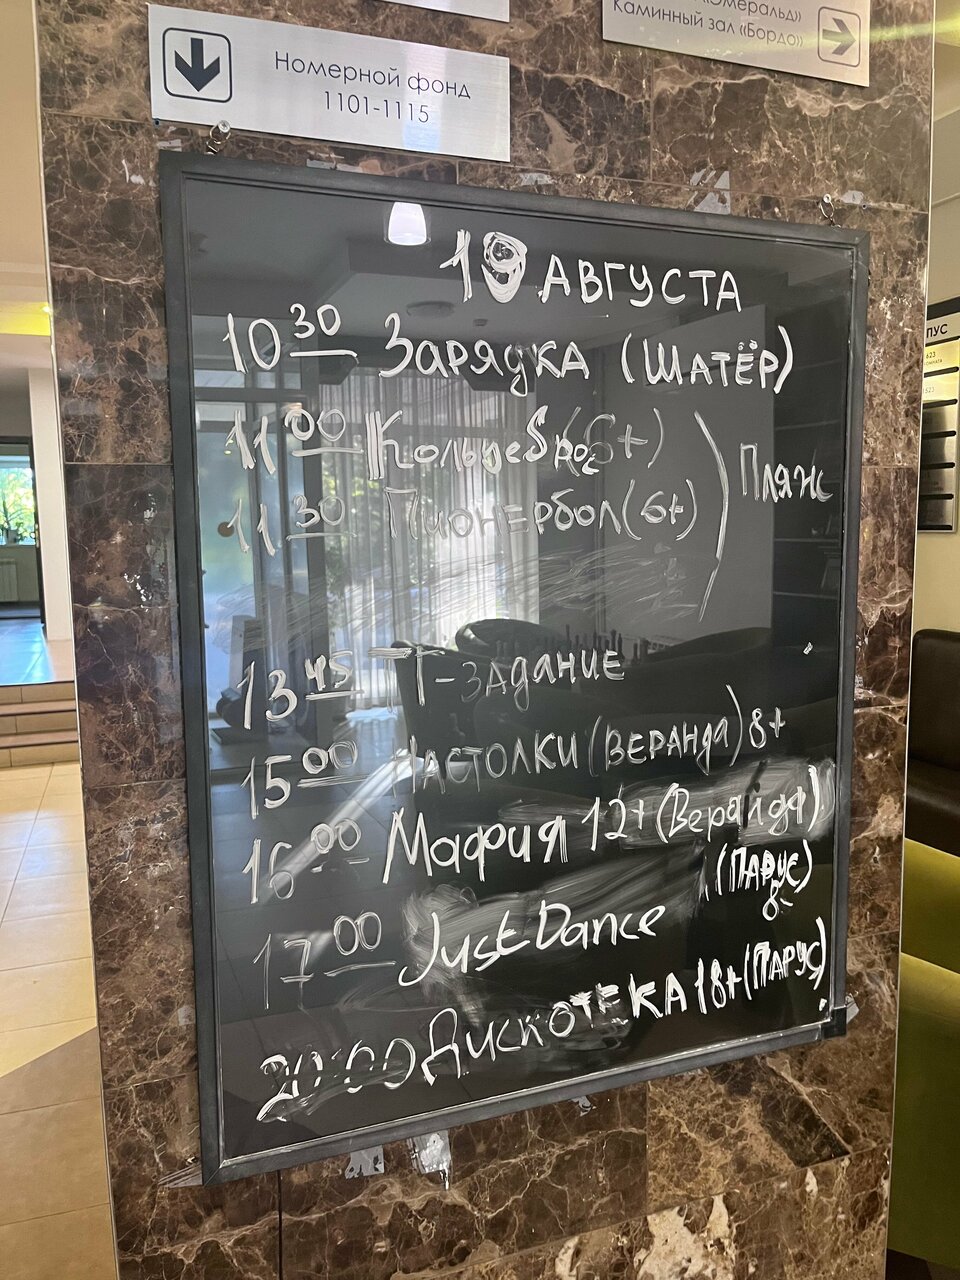 «Эмеральд»
Каминный зал «Бордо»
Номерной фонд
1101-1115
19 АВГУСТА
10 30 ЗАРЯДКА (ШАТЁР)
11 00 Кольцеброс (6+)
11 30 ПИОНЕРБОЛ (6+)
Пляж
13 45 ТТ-ЗАДАНИЕ
15 00 НАСТОЛКИ (ВЕРАНДА) 8+
16 00 Мафия 12+ (Веранда)
(ПАРУС)
17 00 Just Dance
20:00 ДИСКОТЕКА 18+ (ПАРУС)
ПУС
623
523